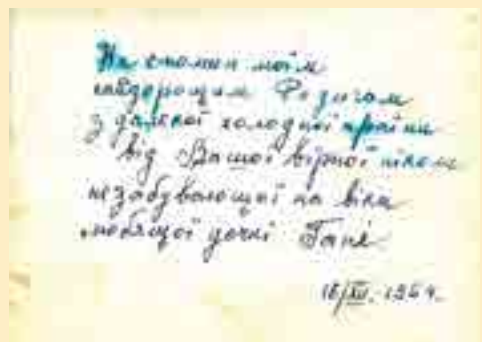 На спомин моїм
найдорощим Родичам
з далекої холодної країни
від Вашої вірної ніколи
незабувающої на віки
люблящої дочкі Гані
18/XII. 1954.